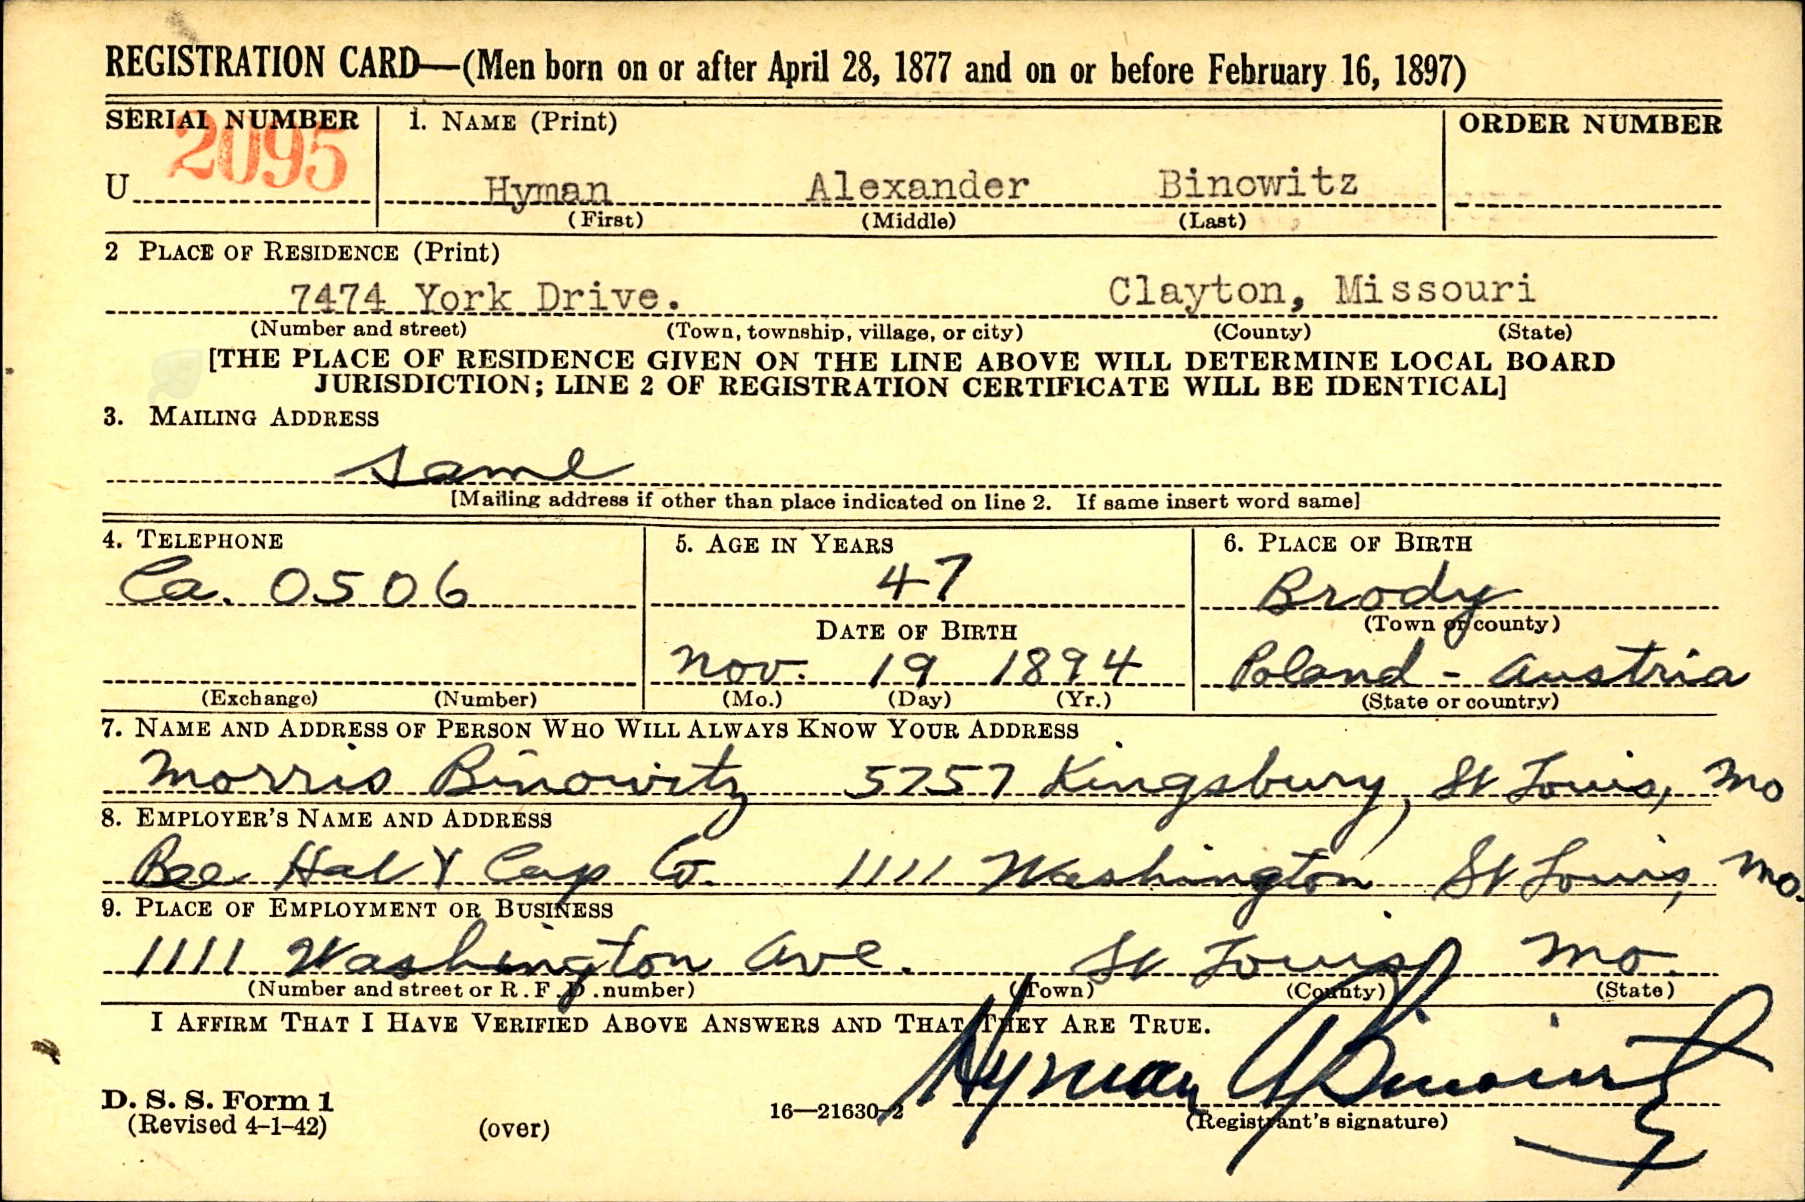 REGISTRATION CARD—(Men born on or after April 28, 1877 and on or before February 16, 1897)
SERIAL NUMBER 1. NAME (Print) ORDER NUMBER
U 2095 Hyman Alexander Binowitz
(First) (Middle) (Last)
2 PLACE OF RESIDENCE (Print)
7474 York Drive. Clayton, Missouri
(Number and street) (Town, township, village, or city) (County) (State)
[THE PLACE OF RESIDENCE GIVEN ON THE LINE ABOVE WILL DETERMINE LOCAL BOARD
JURISDICTION; LINE 2 OF REGISTRATION CERTIFICATE WILL BE IDENTICAL]
3. MAILING ADDRESS
same
[Mailing address if other than place indicated on line 2. If same insert word same]
4. TELEPHONE 5. AGE IN YEARS 6. PLACE OF BIRTH
Ca. 0506 47 Brody
(Town or county)
DATE OF BIRTH
Nov. 19 1894 Poland - Austria
(Exchange) (Number) (Mo.) (Day) (Yr.) (State or country)
7. NAME AND ADDRESS OF PERSON WHO WILL ALWAYS KNOW YOUR ADDRESS
Morris Binowitz 5757 Kingsbury, St Louis, Mo
8. EMPLOYER'S NAME AND ADDRESS
Bee Hat & Cap Co. 1111 Washington St Louis, Mo.
9. PLACE OF EMPLOYMENT OR BUSINESS
1111 Washington Ave. St Louis, Mo.
(Number and street or R. F. D. number) (Town) (County) (State)
I AFFIRM THAT I HAVE VERIFIED ABOVE ANSWERS AND THAT THEY ARE TRUE.
Hyman A Binowitz
D. S. S. Form 1
(Revised 4-1-42) (over) 16—21630-2 (Registrant's signature)